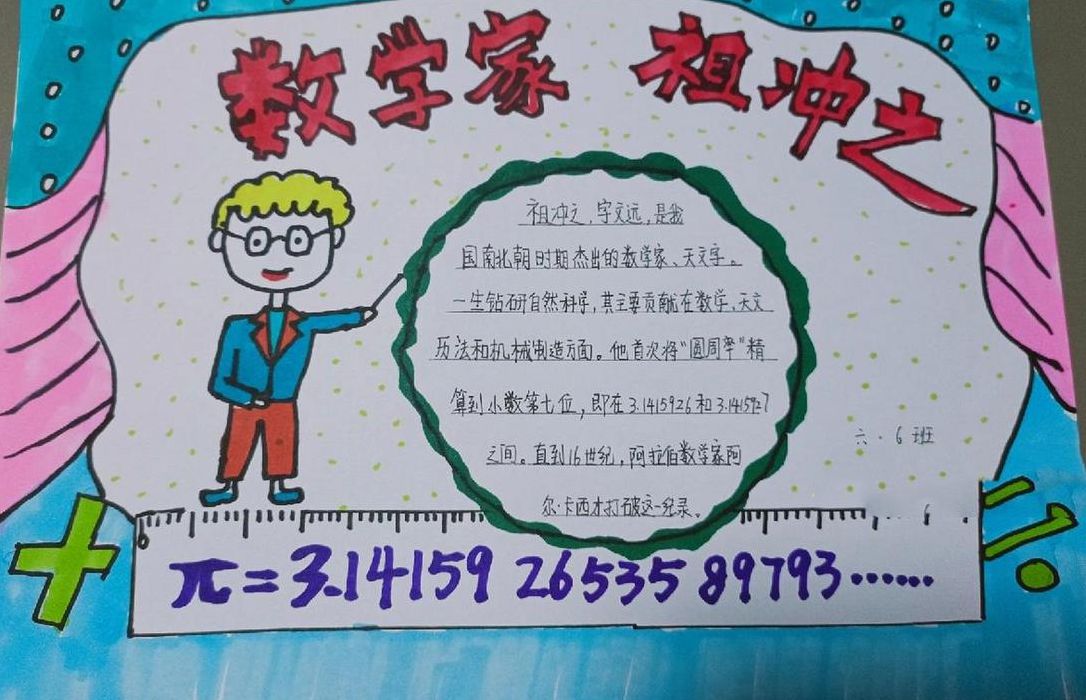 数学家 祖冲之
祖冲之,字文远,是我
国南北朝时期杰出的数学家、天文字。
一生钻研自然科学,其主要贡献在数学、天文
历法和机械制造方面。他首次将“圆周率”精
算到小数第七位,即在3.1415926和3.1415927
之间。直到16世纪,阿拉伯数学家阿
尔·卡西才打破这一纪录。
六·6班
0
π=3.14159 26535 89793······